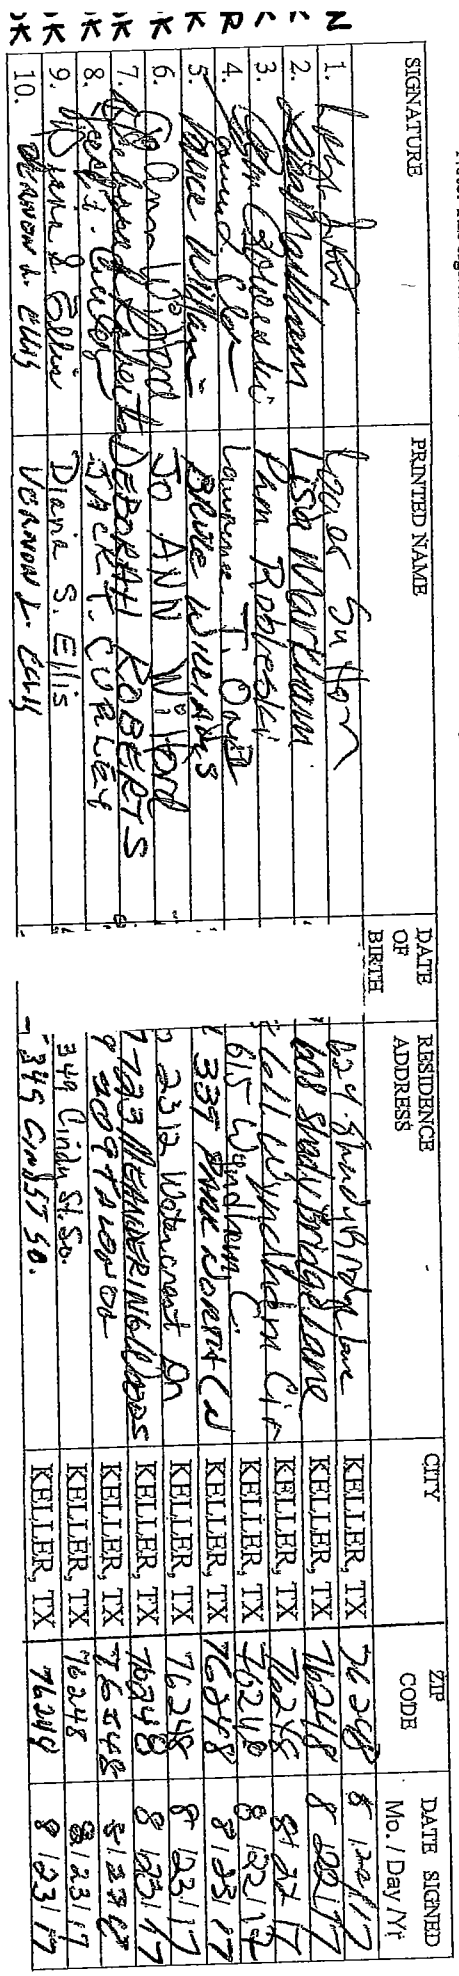 SIGNATURE PRINTED NAME DATE OF BIRTH RESIDENCE ADDRESS CITY ZIP CODE DATE SIGNED Mo. / Day /Yr
N 1. Sutton 624 Shady Bridge Lane KELLER, TX 76248 8 /22/17
2. Lisa Markham Lisa Markham 608 Shady Bridge Lane KELLER, TX 76248 8 22 17
3. Pam Robleski 611 Wyndham Cir KELLER, TX 76248 8/ 22 17
R 4. Lawrence T. 615 Wyndham C KELLER, TX 76248 8 /22/17
K 5. Bruce Williams BRUCE WILLIAMS 339 PARK NORTH LN KELLER, TX 76248 8/23/17
K 6. Jo Ann Wilford JO ANN Wilford 2312 Watercrest Dn KELLER, TX 76248 8 /23/17
K 7. Deborah Roberts DEBORAH ROBERTS 1723 MEANDERING WOODS KELLER, TX 76248 8 /23/17
OK 8. JACK F. CURLEY 2009 KELLER, TX 76248 8/23/17
OK 9. Diana S. Ellis Diana S. Ellis 349 Cindy St. So. KELLER, TX 76248 8/23/17
OK 10. VERNON L. ELLIS VERNON L. Ellis 349 Cindy ST SO. KELLER, TX 76244 8 /23/17